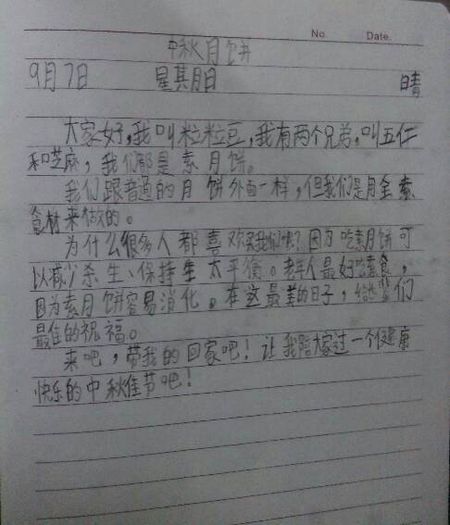 No.
Date.
中秋月饼
9月7日 星其月日 晴
大家好,我叫粒粒豆,我有两个兄弟,叫五仁
和芝麻,我们都是素月饼。
我们跟普通的月饼外面一样,但我们是用全素
食材来做的。
为什么很多人都喜欢我们呢?因为吃素月饼可
以减少杀生、保持生太平衡。老年人最好吃素食,
因为素月饼容易消化。在这最美的日子,给你们
最佳的祝福。
来吧,带我的回家吧!让我陪大家过一个健康
快乐的中秋佳节吧!